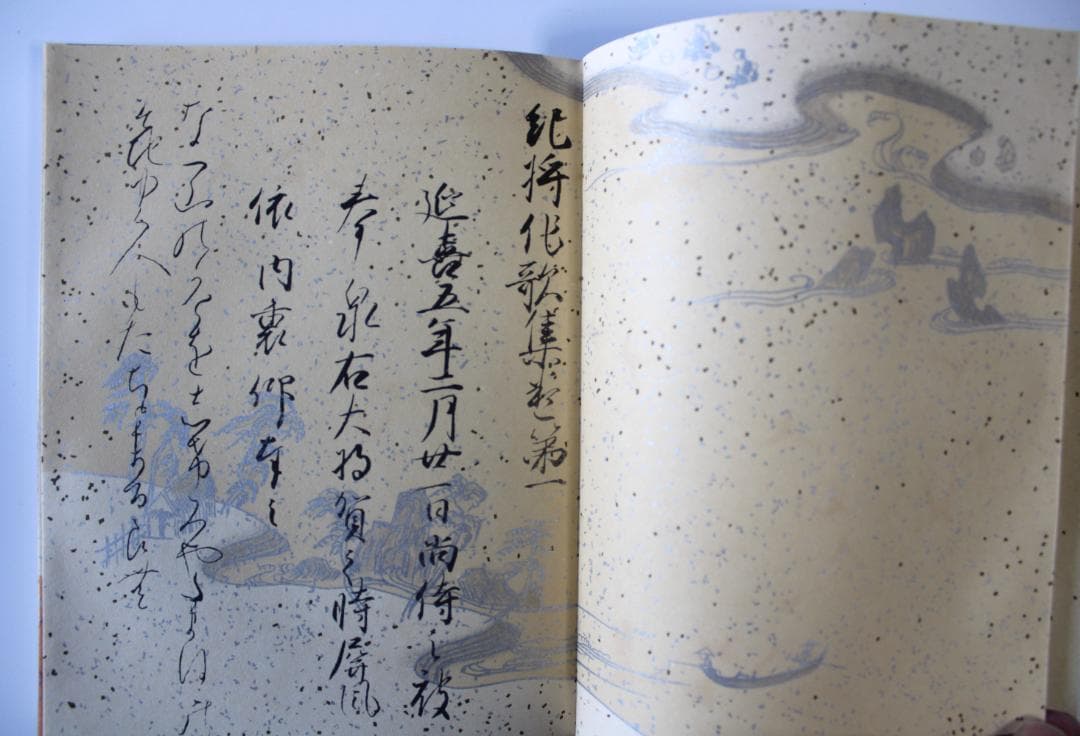 紀将作歌集巻第一
延喜五年二月廿一日尚侍之被
奉泉右大将賀之時屏風
依内裏仰奉之
なつ山のかけをしけみやたまほこの
みちゆく人もたちとまる良無